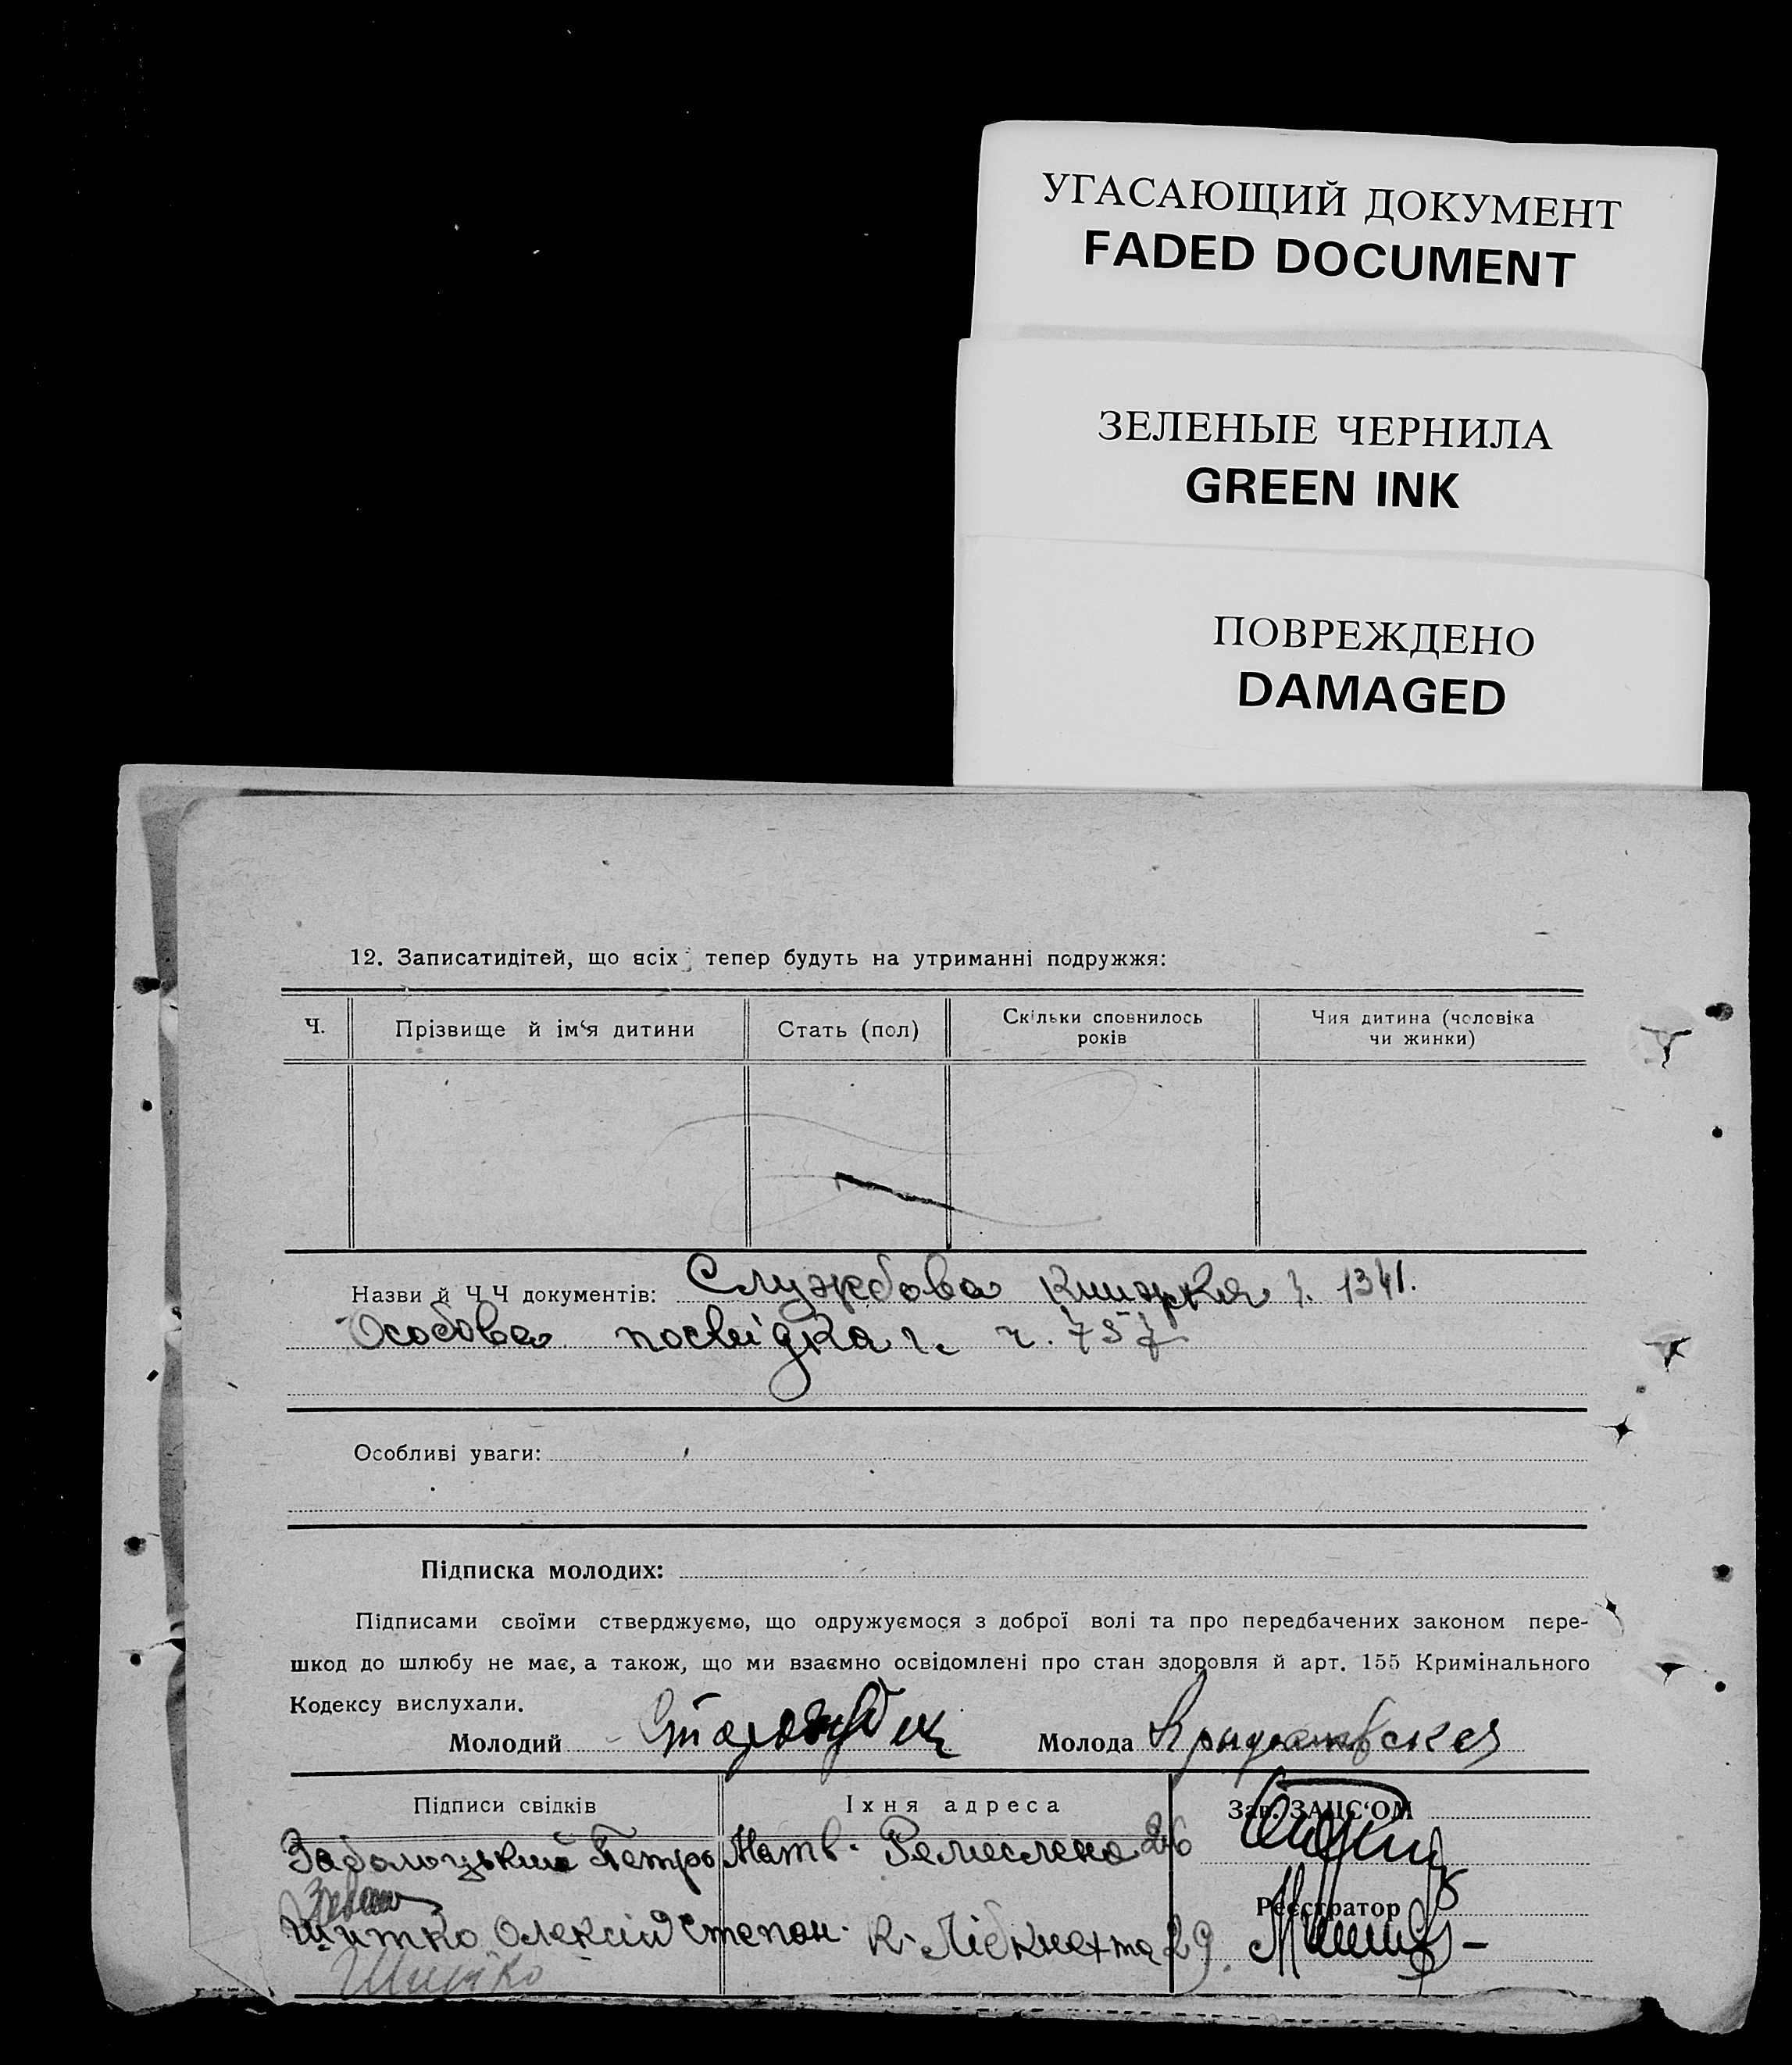 УГАСАЮЩИЙ ДОКУМЕНТ
FADED DOCUMENT
ЗЕЛЕНЫЕ ЧЕРНИЛА
GREEN INK
ПОВРЕЖДЕНО
DAMAGED
12. Записатидітей, що всіх тепер будуть на утриманні подружжя:
Ч. Прізвище й ім‘я дитини Стать (пол) Скільки сповнилось років Чия дитина (чоловіка чи жинки)
Назви й Ч Ч документів: Службова книжка ч. 1341.
Особова посвідка ч. 757
Особливі уваги:
Підписка молодих:
Підписами своїми стверджуємо, що одружуємося з доброї волі та про передбачених законом пере-
шкод до шлюбу не має, а також, що ми взаємно освідомлені про стан здоровля й арт. 155 Кримінального
Кодексу вислухали.
Молодий Молода
Підписи свідків Їхня адреса Зав. ЗАПС‘ОМ
Заболоцький Петро Матв. Ремеслена 26
Реєстратор
Шитко Олексій Степан. К. Лібкнехта 29.
Шитко